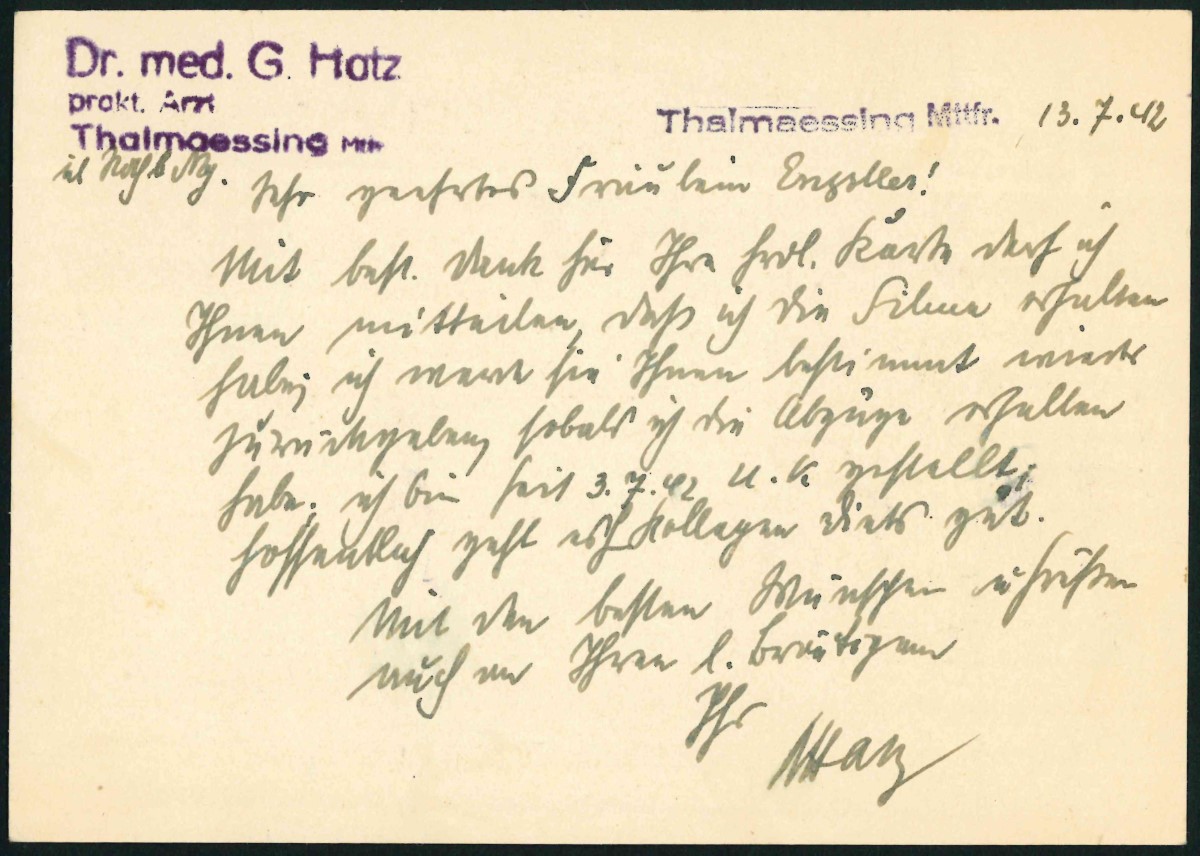 Dr. med. G. Hatz
prakt. Arzt
Thalmaessing Mttfr.
Thalmaessing Mttfr. 13.7.42
Sehr geehrtes Fräulein
Mit best. Dank für Ihre frdl. Karte darf ich
Ihnen mitteilen, daß ich die Filme erhalten
habe, ich werde sie Ihnen bestimmt wieder
zurückgeben, sobald ich die Abzüge erhalten
habe. ich bin seit 3.7.42 u.k gestellt;
hoffentlich geht es Kollegen gut.
Mit den besten Wünschen u Grüßen
auch an Ihren l. Bräutigam
Ihr
Hatz